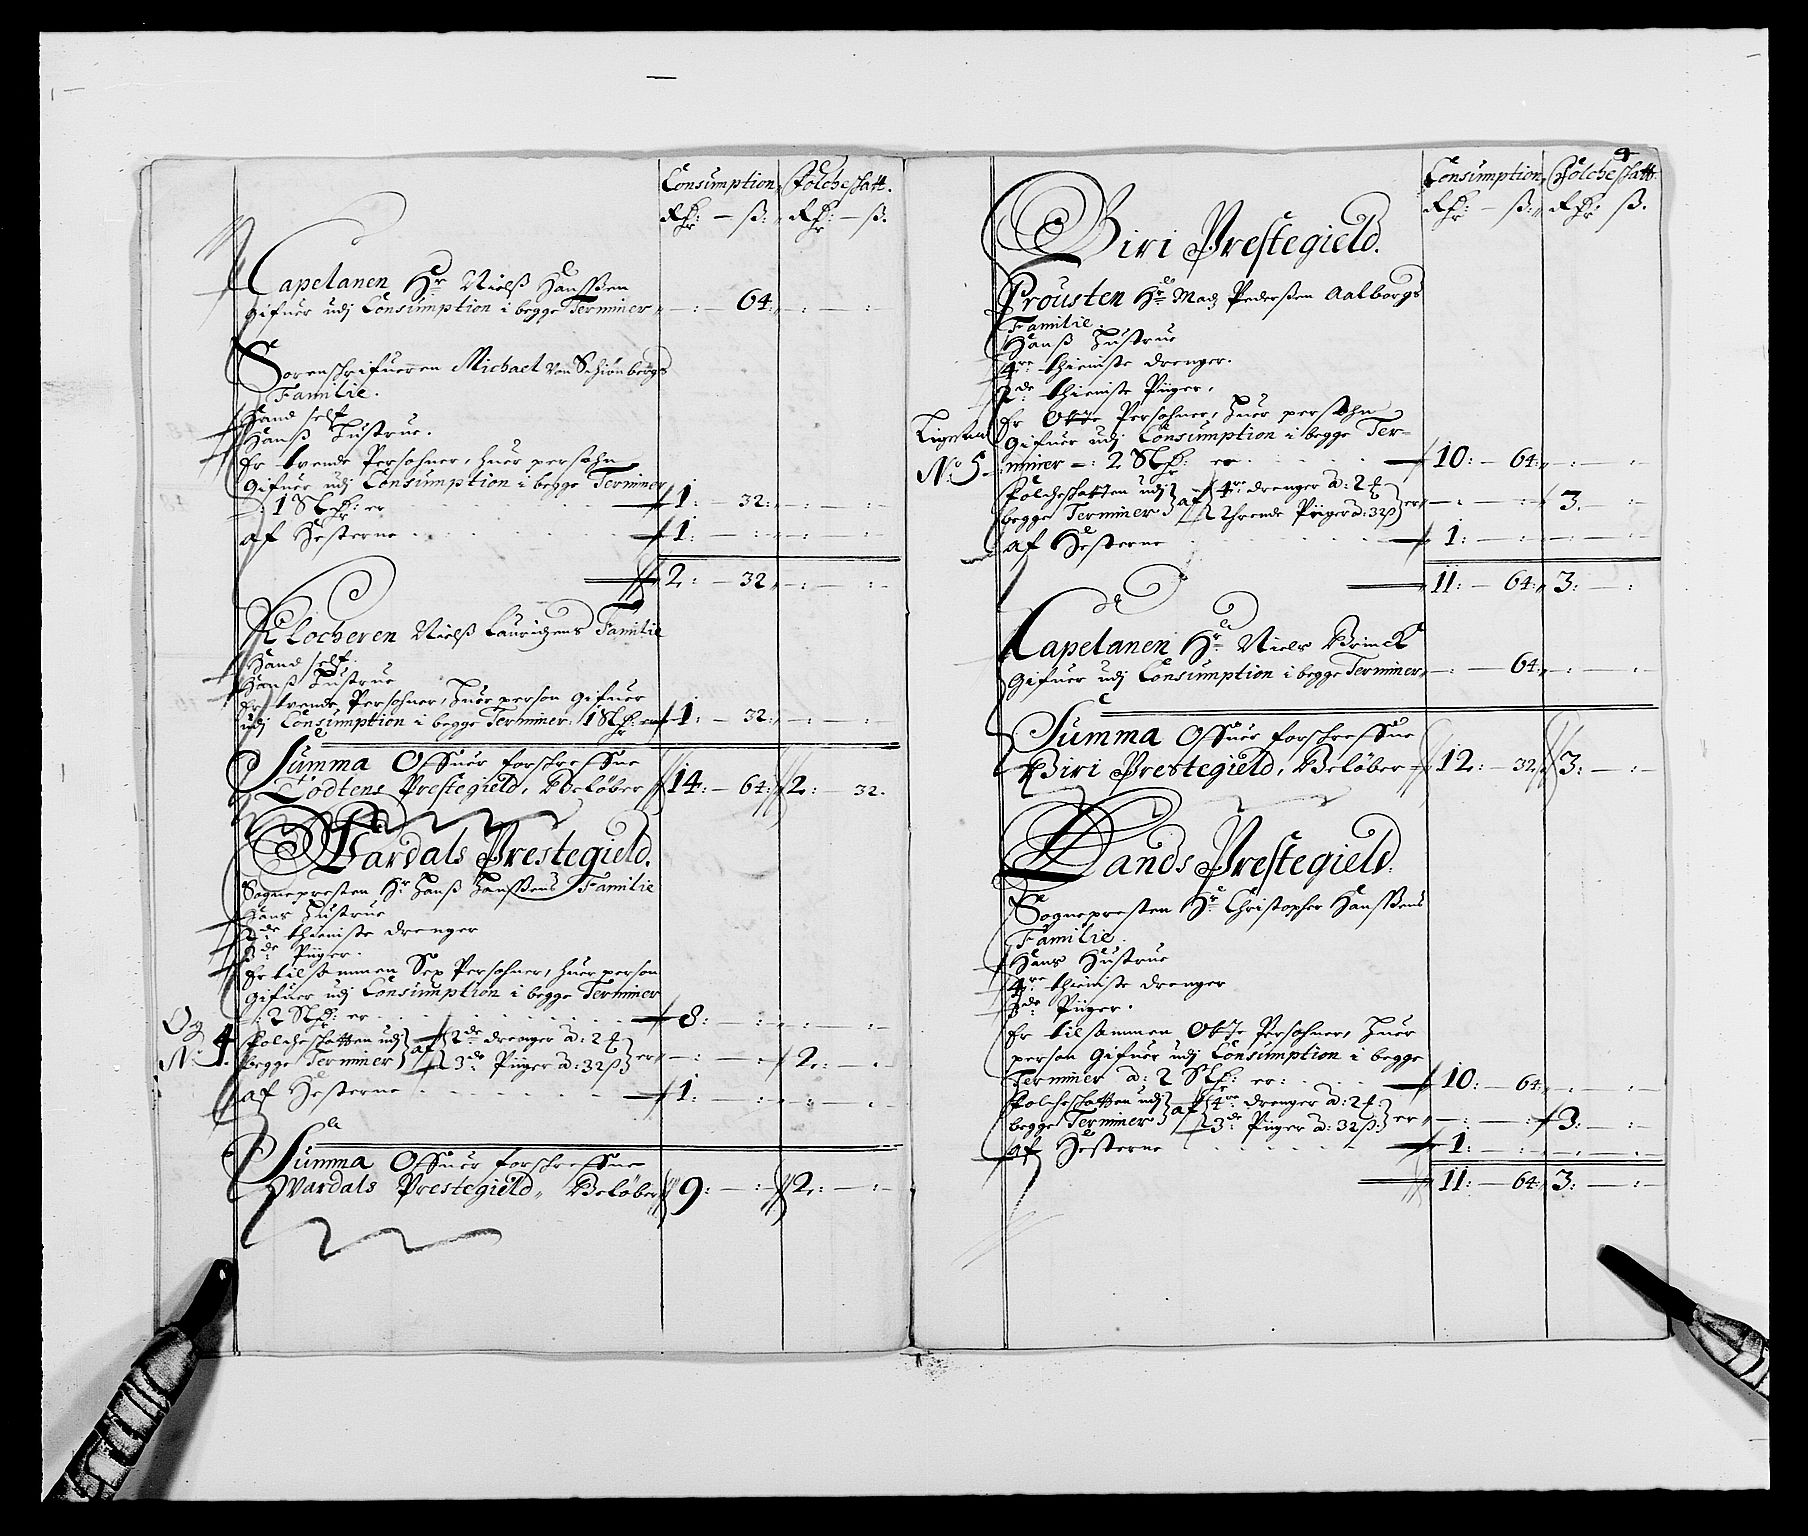 Consumption, Folcheskatt.
Rdr: – ß: Rdr: – ß.
Capelanen Hr Nielß Hanssøen
Gifuer udj Consumption i begge Terminer – : – 64: – : – :
Sorenschrifueren Michael von Schiønbergs
Familie.
Hand self
Hanß Hustrue.
Er tvende Persohner, huer persohn
Gifuer udj Consumption i begge Terminer
: 1 Rdr: er 1: – 32: – : – :
af Hesterne 1: – : – : – :
2: – 32 – : – :
Klocheren Nielß Lauridzens Familie
Hand self.
Hanß Hustrue
Er tvende Persohner, huer person Gifuer
udj Consumption i begge Terminer: 1 Rdr: er 1: – 32: – : – :
Summa Offuer forschreffne
Todtens Prestegield, Beløber 14: – 64: 2: – 32.
Wardals Prestegield.
Sognepresten Hr Hanß Hanssens Familie
Hans Hustrue
2de thieniste drenger
3de Piiger.
Er tilsammen Sex Persohner, huer person
Gifuer udj Consumption i begge Terminer
: 2 Rdr: er 8: – : – : – :
Og
No 4.
Folcheskatten udj begge Terminer af 2de drenger a: 2 3de Piiger a: 32 ß er – : – : 2: – :
af Hesterne 1: – : – : – :
Summa Offuer forschreffne
Wardals Prestegield, Beløber 9: – : 2: – :
9
Consumption, Folcheskatt.
Rdr: – ß: Rdr: ß.
Biri Prestegield.
Prousten Hr Madz Pederßen Aalborgs
Familie.
Hanß Hustrue
4re thieniste drenger.
3de thieniste Piiger.
Er Otte Persohner, huer persohn
Gifuer udj Consumption i begge Ter-
No 5
miner –: 2 Rdr: er 10: – 64: – : – :
Folcheskatten udj begge Terminer af 4re drenger a: 2 Thrende Piiger a: 32 ß er – : – : 3. – :
af Hesterne 1: – : – : – :
11: – 64: 3: – :
Capelanen Hr Niels Brinck
Gifuer udj Consumption i begge Terminer – : – 64: – : – :
Summa Offuer forschreffne
Biri Prestegield, Beløber 12: – 32. 3: – :
Lands Prestegield.
Sognepresten Hr Christopher Hanssens
Familie.
Hans Hustrue
4re thieniste drenger
3de Piiger.
Er tilsammen Otte Persohner, huer
person Gifuer udj Consumption i begge
Terminer a: 2 Rdr: er: 10: – 64: – : – :
Folcheskatten udj begge Terminer af 4re drenger a: 2 3de Piiger a: 32 ß er – : – : 3: – :
af Hesterne 1: – : – : – :
11: – 64: 3: – :